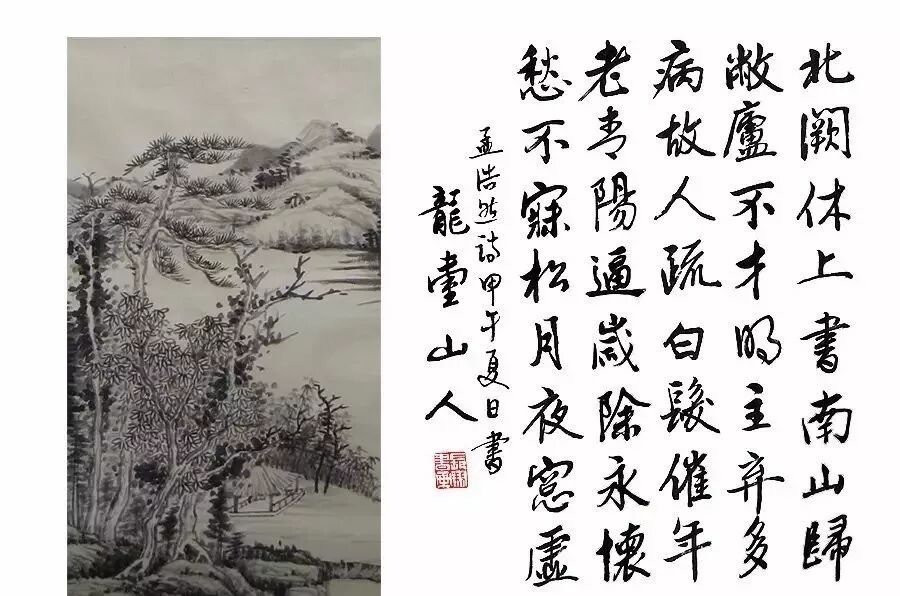 北闕休上書南山歸
敝廬不才明主弃多
病故人疏白髮催年
老青陽逼歲除永懷
愁不寐松月夜窓虛
孟浩然詩甲午夏日書
龍堂山人